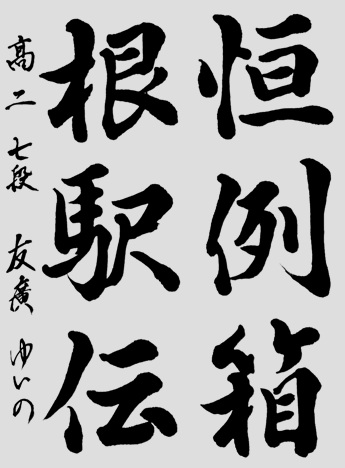 恒例箱
根駅伝
高二 七段 友廣 ゆいの